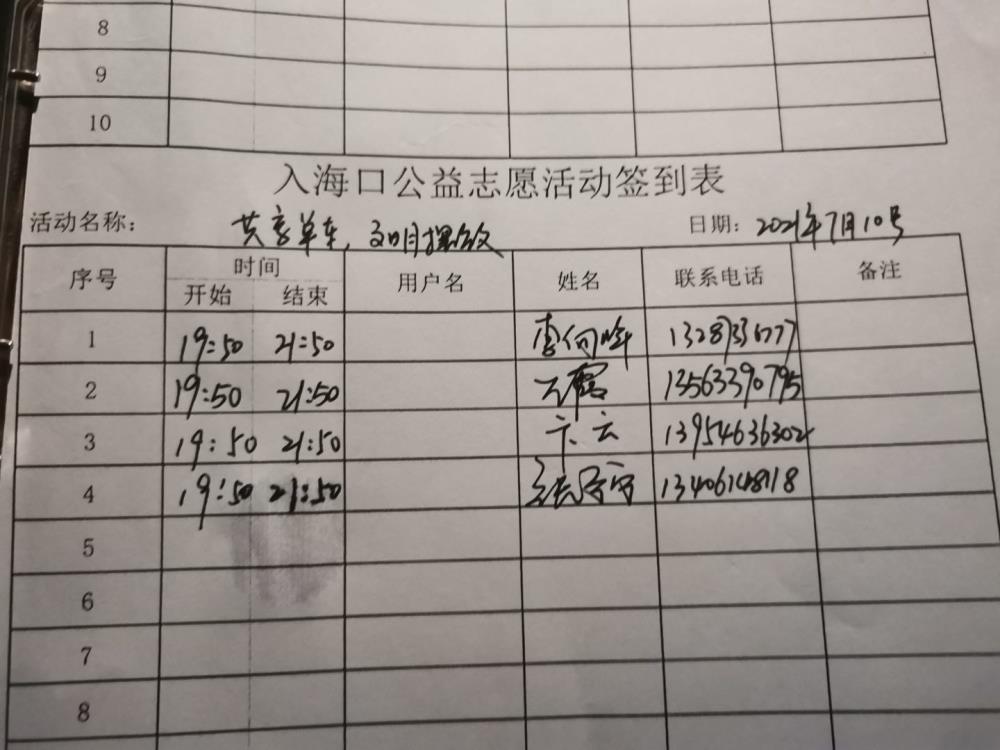 8
9
10
入海口公益志愿活动签到表
活动名称: 共享单车,文明摆放 日期: 2021年7月10号
序号 时间 用户名 姓名 联系电话 备注
开始 结束
1 19:50 21:50 李向峰
2 19:50 21:50 13563390795
3 19:50 21:50 卞云 13954636302
4 19:50 21:50
5
6
7
8